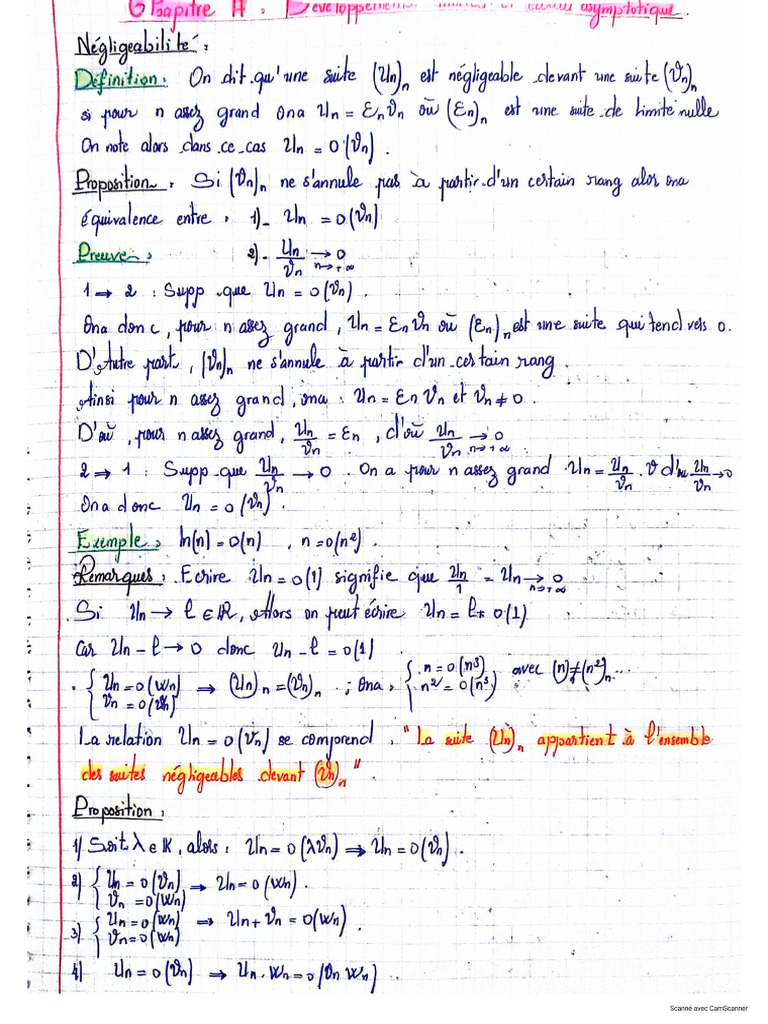 Chapitre A : Développements limités et calcul asymptotique.
Négligeabilité :
Définition : On dit qu'une suite (Un)n est négligeable devant une suite (Vn)n
si pour n assez grand Ona Un = Ɛn Vn où (Ɛn)n est une suite de limite nulle
On note alors dans ce cas Un = o(Vn).
Proposition : Si (Vn)n ne s'annule pas à partir d'un certain rang alors ona
équivalence entre : 1)- Un = o(Vn)
Preuve : 2)- Un/Vn → 0 n→+∞
1 → 2 : Supp que Un = o(Vn).
Ona donc, pour n assez grand, Un = Ɛn Vn où (Ɛn)n est une suite qui tend vers 0.
D'Autre part, (Vn)n ne s'annule à partir d'un certain rang
Ainsi pour n assez grand, ona : Un = Ɛn Vn et Vn ≠ 0.
D'où, pour n assez grand, Un/Vn = Ɛn, d'où Un/Vn → 0 n→+∞
2 ⇒ 1 : Supp que Un/Vn → 0. On a pour n assez grand Un = Un/Vn . V d'où Un/Vn → 0
Ona donc Un = o(Vn).
Exemple : ln(n) = o(n) , n = o(n²).
Remarques : Ecrire Un = o(1) signifie que Un/1 = Un → 0 n→+∞
Si Un → l ∈ IR, Alors on peut écrire Un = l + o(1)
Car Un - l → 0 donc Un - l = o(1)
. { Un = o(Wn) Vn = o(Wn) ⇒ (Un)n = (Vn)n ; Ona, { n = o(n³) n² = o(n³) avec (n)n ≠ (n²)n ...
La relation Un = o(Vn) se comprend : "La suite (Un)n appartient à l'ensemble
des suites négligeables devant (Vn)n".
Proposition :
1) Soit λ ∈ K, alors : Un = o(λVn) ⇒ Un = o(Vn).
2) { Un = o(Vn) Vn = o(Wn) ⇒ Un = o(Wn).
3) { Un = o(Wn) Vn = o(Wn) ⇒ Un + Vn = o(Wn)
4) Un = o(Vn) ⇒ Un . Wn = o(Vn Wn)
Scanné avec CamScanner